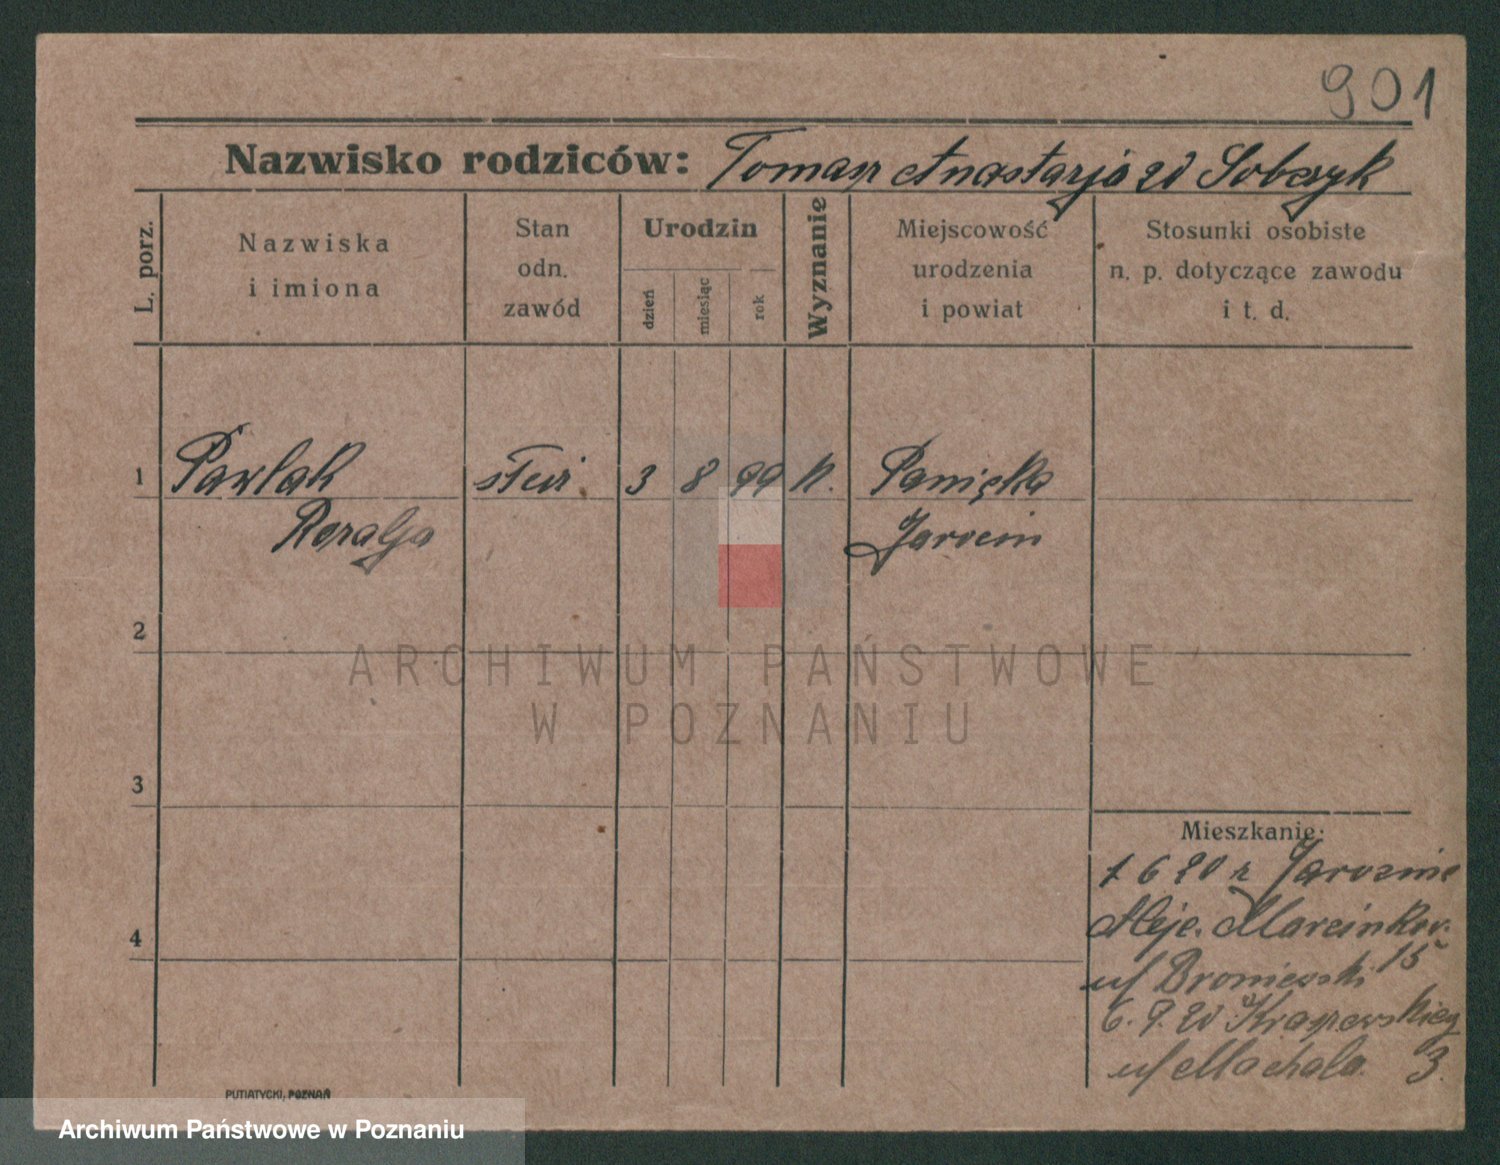 901
Nazwisko rodziców: Tomasz Anastazja zd Sobczyk
L. porz.
Nazwiska
i imiona
Stan
odn.
zawód
Urodzin
dzień
miesiąc
rok
Wyznanie
Miejscowość
urodzenia
i powiat
Stosunki osobiste
n. p. dotyczące zawodu
i t. d.
1 Pawlak służ. 3 8 99 k. Panięka
Rozalja Jarocin
2
ARCHIWUM PAŃSTWOWE
W POZNANIU
3
Mieszkanie:
1 6 20 z Jarocinie
Aleje. Marcinkow.
4
u/ Broniewski 15
Kraszewskieg
u/ Machala 3.
PUTIATYCKI, POZNAŃ
Archiwum Państwowe w Poznaniu